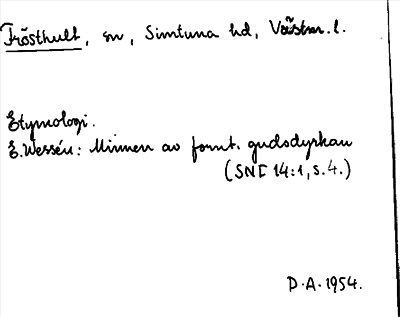 Frösthult, sn, Simtuna hd, Västm. l.
Etymologi.
E. Wessén: Minnen av fornt. gudsdyrkan
(SNF 14:1, s. 4.)
D. A. 1954.